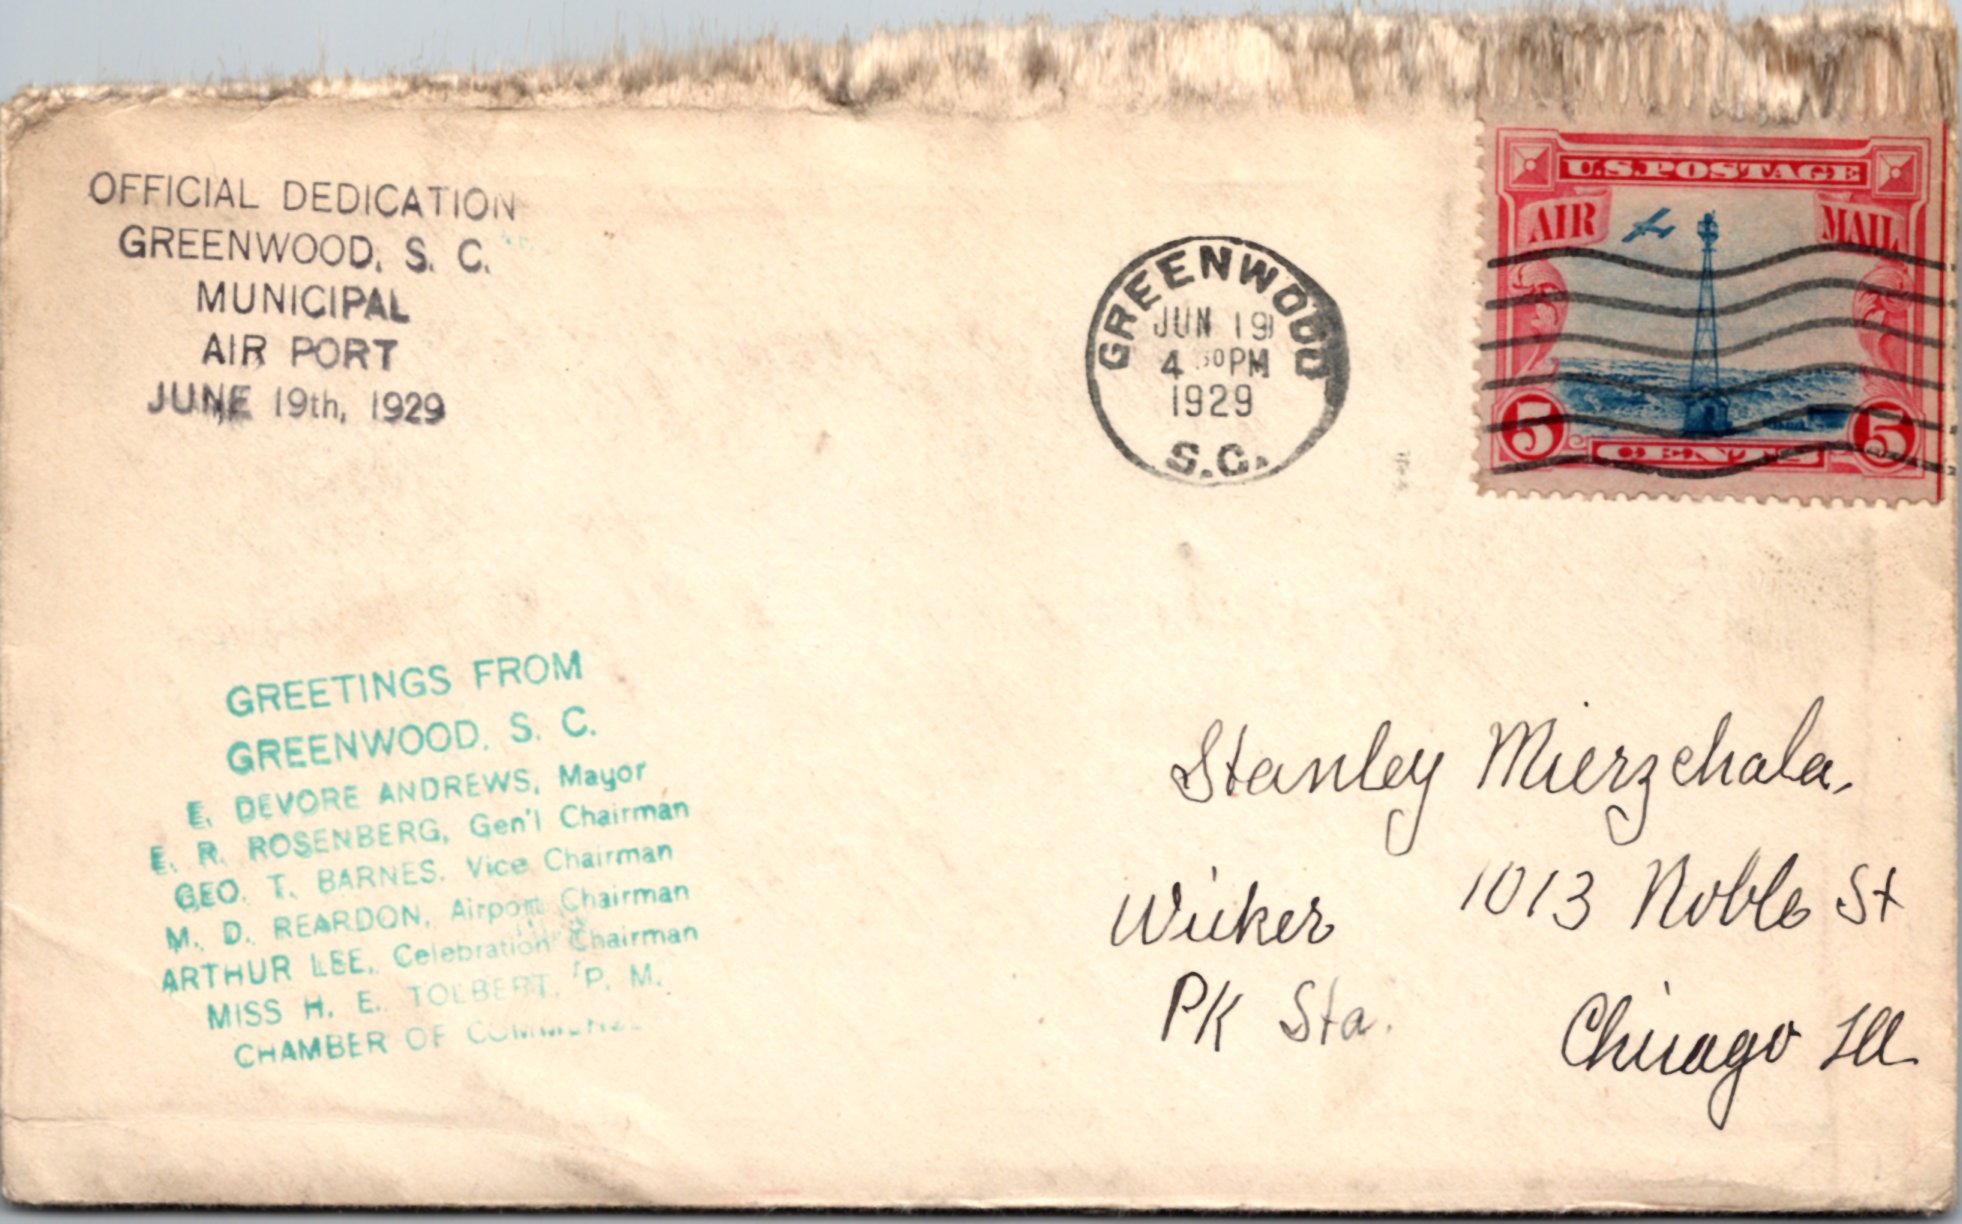 OFFICIAL DEDICATION
GREENWOOD, S. C.
MUNICIPAL
AIR PORT
JUNE 19th, 1929
GREENWOOD
JUN 19
4 30 PM
1929
S.C.
U.S. POSTAGE
AIR MAIL
5 5
CENTS
GREETINGS FROM
GREENWOOD, S. C.
E. DEVORE ANDREWS, Mayor
E. R. ROSENBERG, Gen'l Chairman
GEO. T. BARNES, Vice Chairman
M. D. REARDON, Airport Chairman
ARTHUR LEE, Celebration Chairman
MISS H. E. TOLBERT, P. M.
CHAMBER OF COMMERCE
Stanley Mierzchala,
1013 Noble St
Wicker
Pk Sta.
Chicago Ill